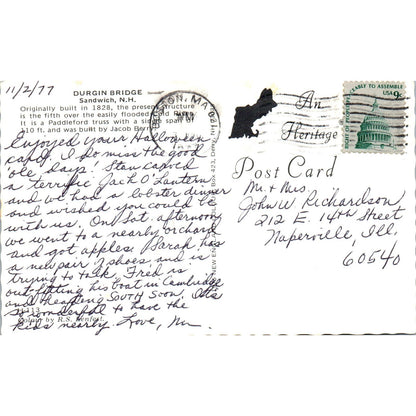 11/2/77
DURGIN BRIDGE
Sandwich, N.H.
Originally built in 1828, the present structure
is the fifth over the easily flooded Cold River.
It is a Paddleford truss with a single span of
110 ft. and was built by Jacob Berry.
Enjoyed your Halloween
card. I do miss the good
'ole days! Stan carved
a terrific Jack O'Lantern
and we had a lobster dinner
and wished you could be
with us. On Sat. afternoon
we went to a nearby orchard
and got apples. Sarah has
a new pair of shoes, and is
trying to talk. Fred is
out-fitting his boat in Cambridge
and heading South soon. It's
so wonderful to have the
kids nearby. Love,
Colour by R.S.
BOSTON, MA 021
An
Heritage
ABLY TO ASSEMBLE
USA 9c
Post Card
Mr. & Mrs.
John W. Richardson
212 E. 14th Street
Naperville, Ill.
60540